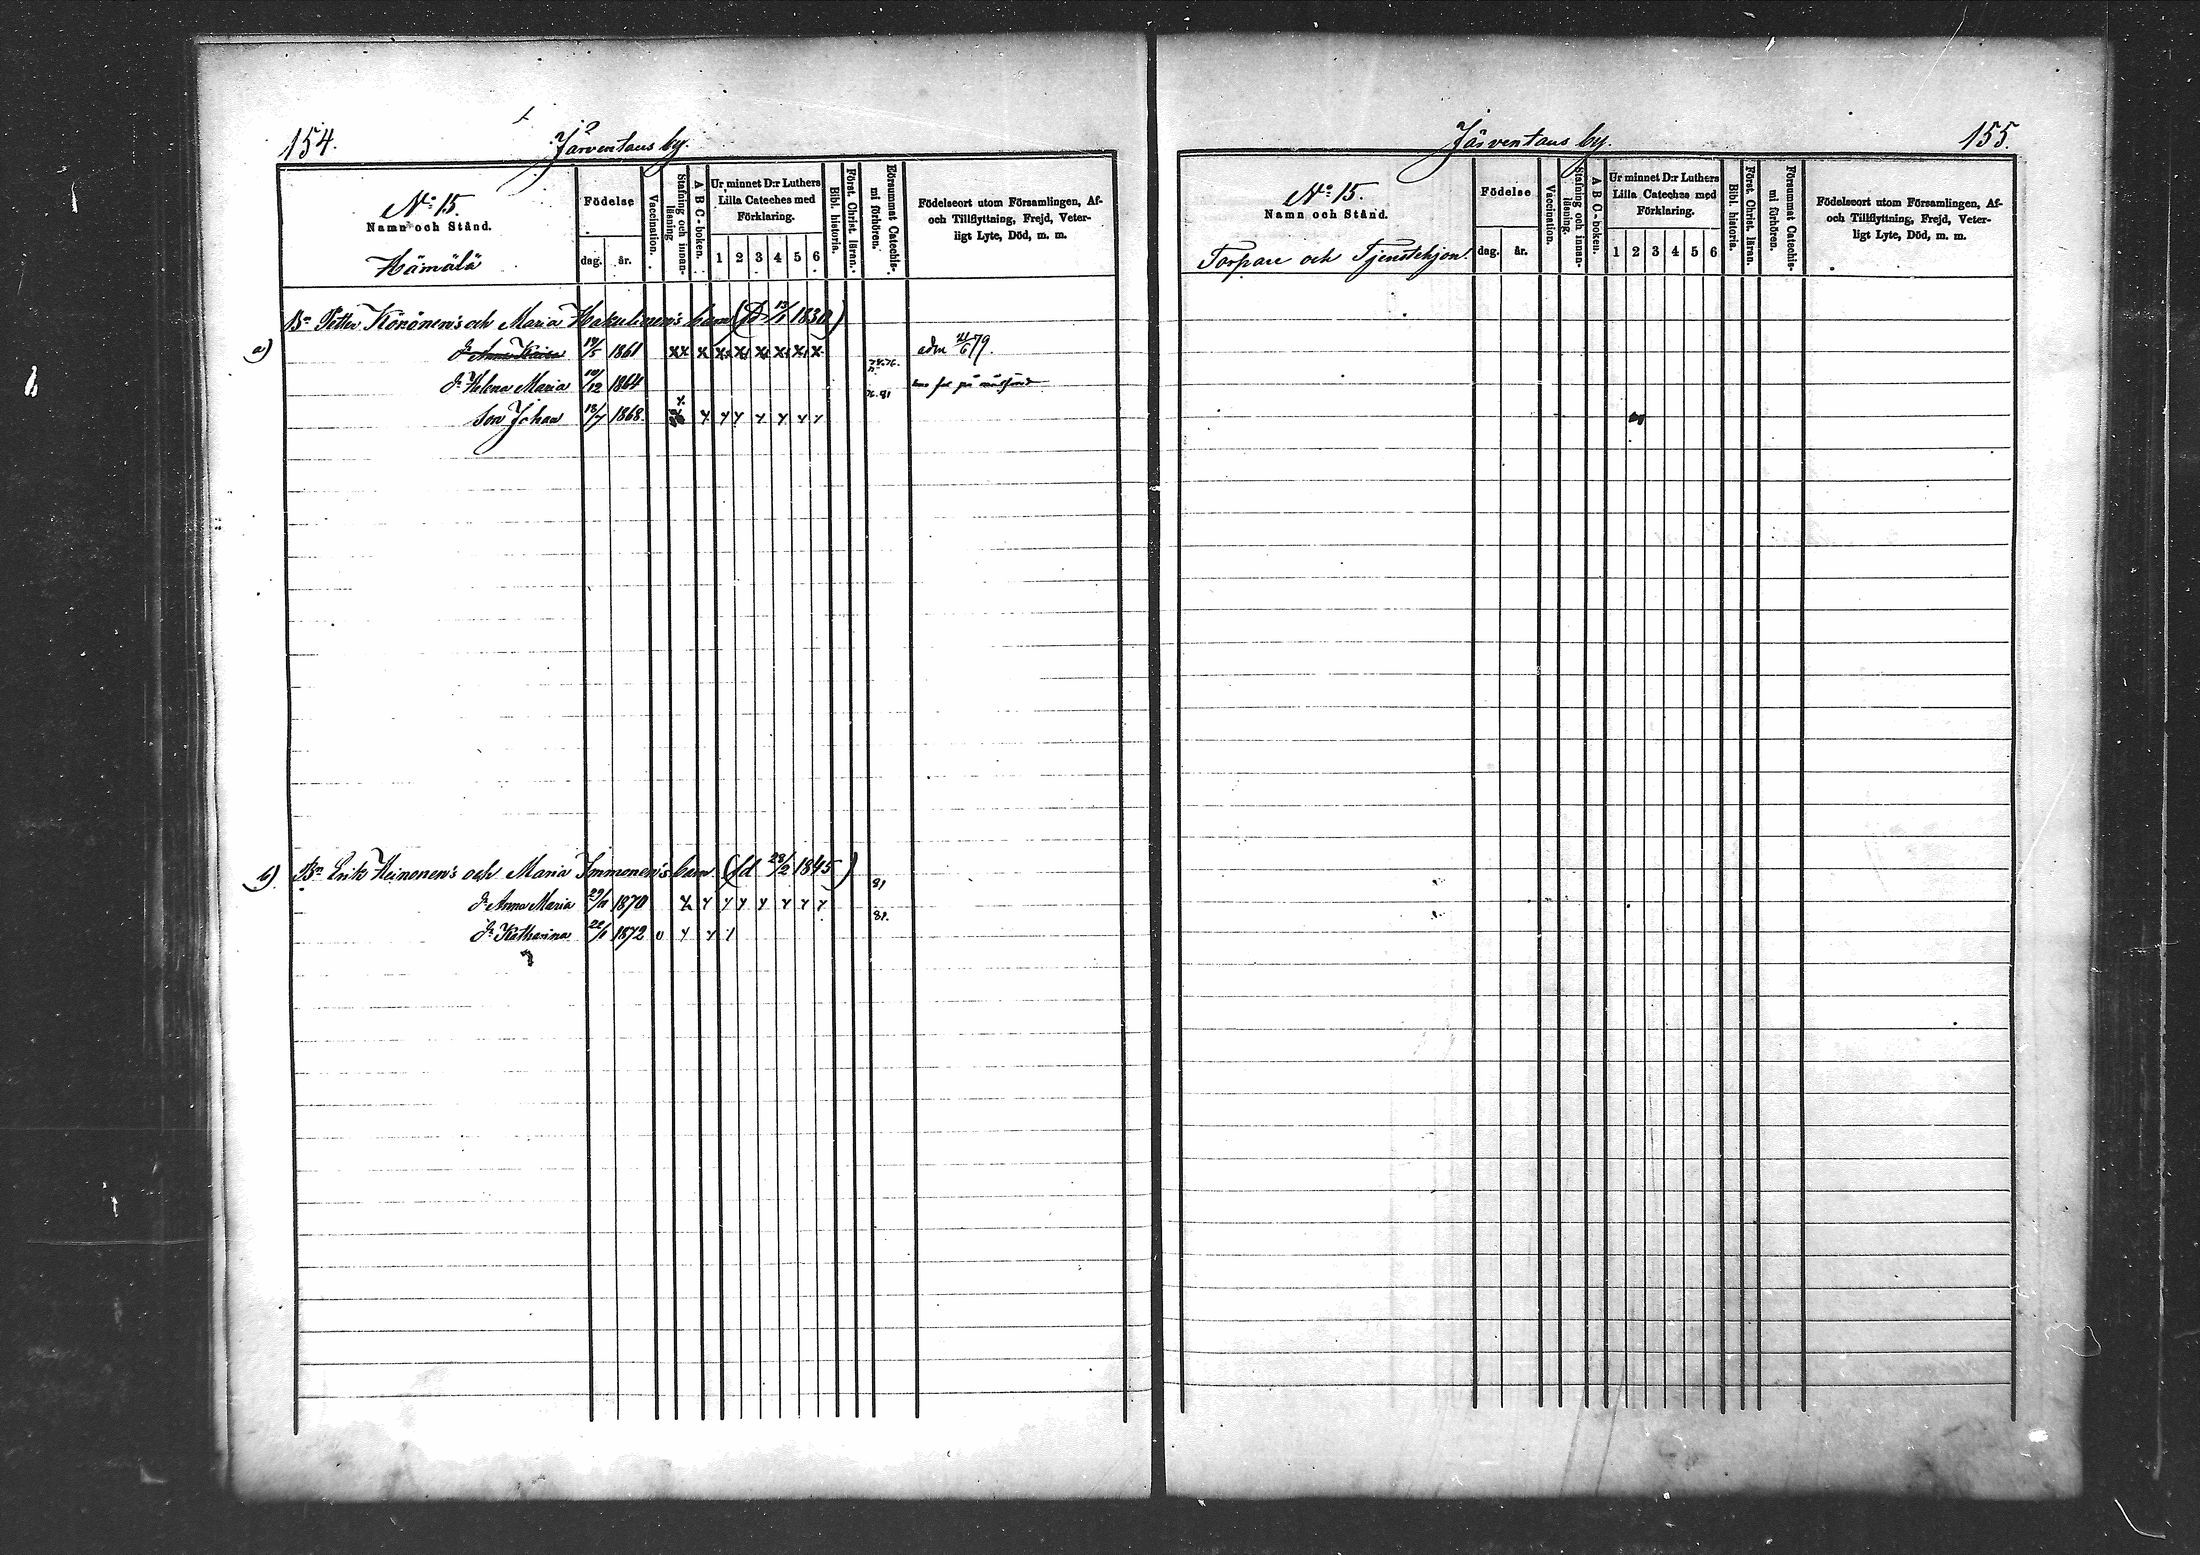 154.
Järventaus by.
No 15.
Namn och Stånd.
Hämälä
Födelse
dag. år.
Vaccination.
Stafning och innan-
läsning
A B C-boken.
Ur minnet D:r Luthers
Lilla Cateches med
Förklaring.
1 2 3 4 5 6
Bibl. historia.
Först. Christ. läran.
Försummat Catechis-
mi förhören.
Födelseort utom Församlingen, Af-
och Tillflyttning, Frejd, Veter-
ligt Lyte, Död, m. m.
Bn Petter Könönen's och Maria Hakulinen's barn (fd 13/1 1830)
a) dr Anna Kaisa 19/5 1861 xx x x x x x x x adm 21/6 79.
74.76.
dr Helena Maria 10/12 1864
76.81
Son Johan 13/7 1868
81
b) Bn Erik Heinonen's och Maria Immonen's barn (fd 28/2 1845)
dr Anna Maria 29/11 1870
81.
dr Katharina 22/11 1872 v
Järventaus by.
155.
No 15.
Namn och Stånd.
Torpare och Tjenstehjon.
Födelse
dag. år.
Vaccination.
Stafning och innan-
läsning.
A B C-boken.
Ur minnet D:r Luthers
Lilla Cateches med
Förklaring.
1 2 3 4 5 6
Bibl. historia.
Först. Christ. läran.
Försummat Catechis-
mi förhören.
Födelseort utom Församlingen, Af-
och Tillflyttning, Frejd, Veter-
ligt Lyte, Död, m. m.